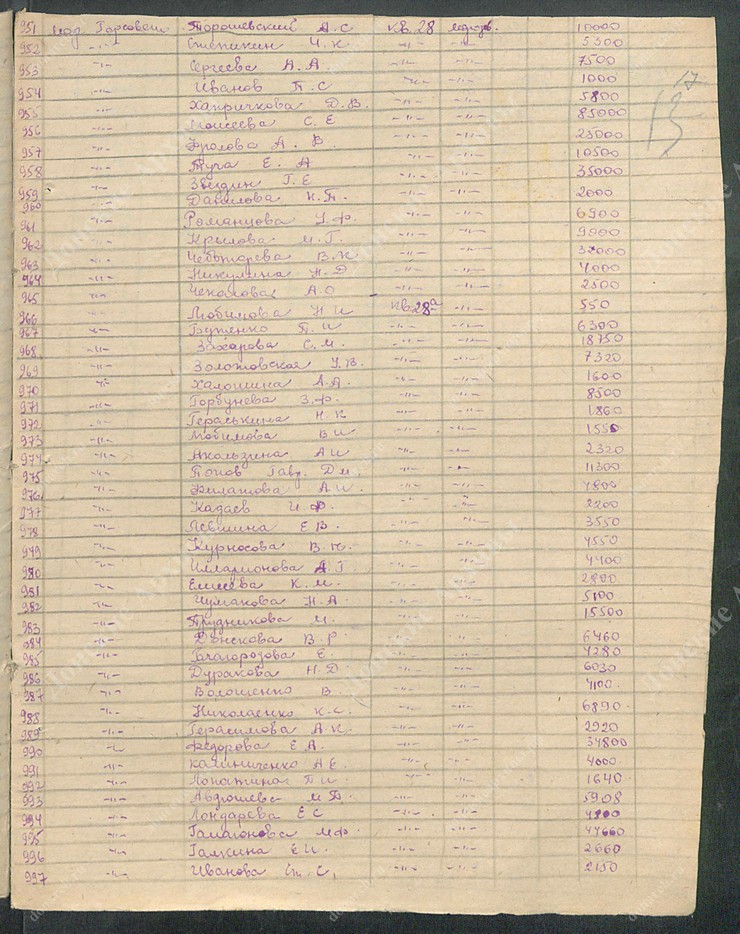 951 Горсовет Торошевский А.С кв. 28 10000
952 -"- Степикин Ч.К. -"- -"- 5300
953 -"- Сергеева А.А. -"- -"- 7500
954 -"- Иванов П.С -"- -"- 1000
955 -"- Хапричкова Д.В. -"- -"- 5800
956 -"- Моисеева С.Е -"- -"- 85000
957 -"- Фролова А.В. -"- -"- 25000
958 -"- Туча Е.А -"- -"- 10500
959 -"- Звездин Г.Е -"- -"- 35000
960 -"- Данилова К.П. -"- -"- 2000
961 -"- Романцова У.Ф. -"- -"- 6900
962 -"- Крылова М.Г. -"- -"- 9000
963 -"- Чеботарева В.К -"- -"-
964 -"- Никулина Н.Д -"- -"- 4000
965 -"- Чекалова А.О -"- -"- 2500
966 -"- Любимова Н.И кв.28а -"- 550
967 -"- Буженко П.И -"- -"- 6300
968 -"- Захарова С.М. -"- -"- 18750
969 -"- Золотовская У.В. -"- -"- 7320
970 -"- Халошина А.А. -"- -"- 1600
971 -"- Горбунева З.Ф. -"- -"- 8500
972 -"- Гераськина Н.К -"- -"- 1860
973 -"- Любимова В.И -"- -"- 1550
974 -"- Акользина А.И -"- -"- 2320
975 -"- Попов Гавр. Дм. -"- -"- 11300
976 -"- Филатова А.И. -"- -"- 4800
977 -"- Кадаев И.Ф. -"- -"- 2200
978 -"- Левшина Е.В. -"- -"- 3550
979 -"- Курносова В.К. -"- -"- 4550
980 -"- Илларионова А.Г -"- -"- 4400
981 -"- Елисеева К.М. -"- -"- 2800
982 -"- Чумакова Н.А -"- -"- 5100
983 -"- Прудникова М. -"- -"- 15500
984 -"- Донскова В.Р -"- -"- 6460
985 -"- Благородова Е. -"- -"- 4280
986 -"- Дуракова Н.Д -"- -"- 6030
987 -"- Волошенко В. -"- -"- 4100
988 -"- Николаенко К.С. -"- -"- 6890
989 -"- Герасимова А.К. -"- -"- 2920
990 -"- Федорова Е.А. -"- -"- 34800
991 -"- Калиниченко А.Е. -"- -"- 4000
992 -"- Лопатина П.И. -"- -"- 1640
993 -"- М.П. -"- -"- 5908
994 -"- Лондарева Е.С -"- -"-
995 -"- М.Ф. -"- -"- 44660
996 -"- Галкина Е.И. -"- -"- 2660
997 -"- Иванова Ст.С. -"- -"- 2150